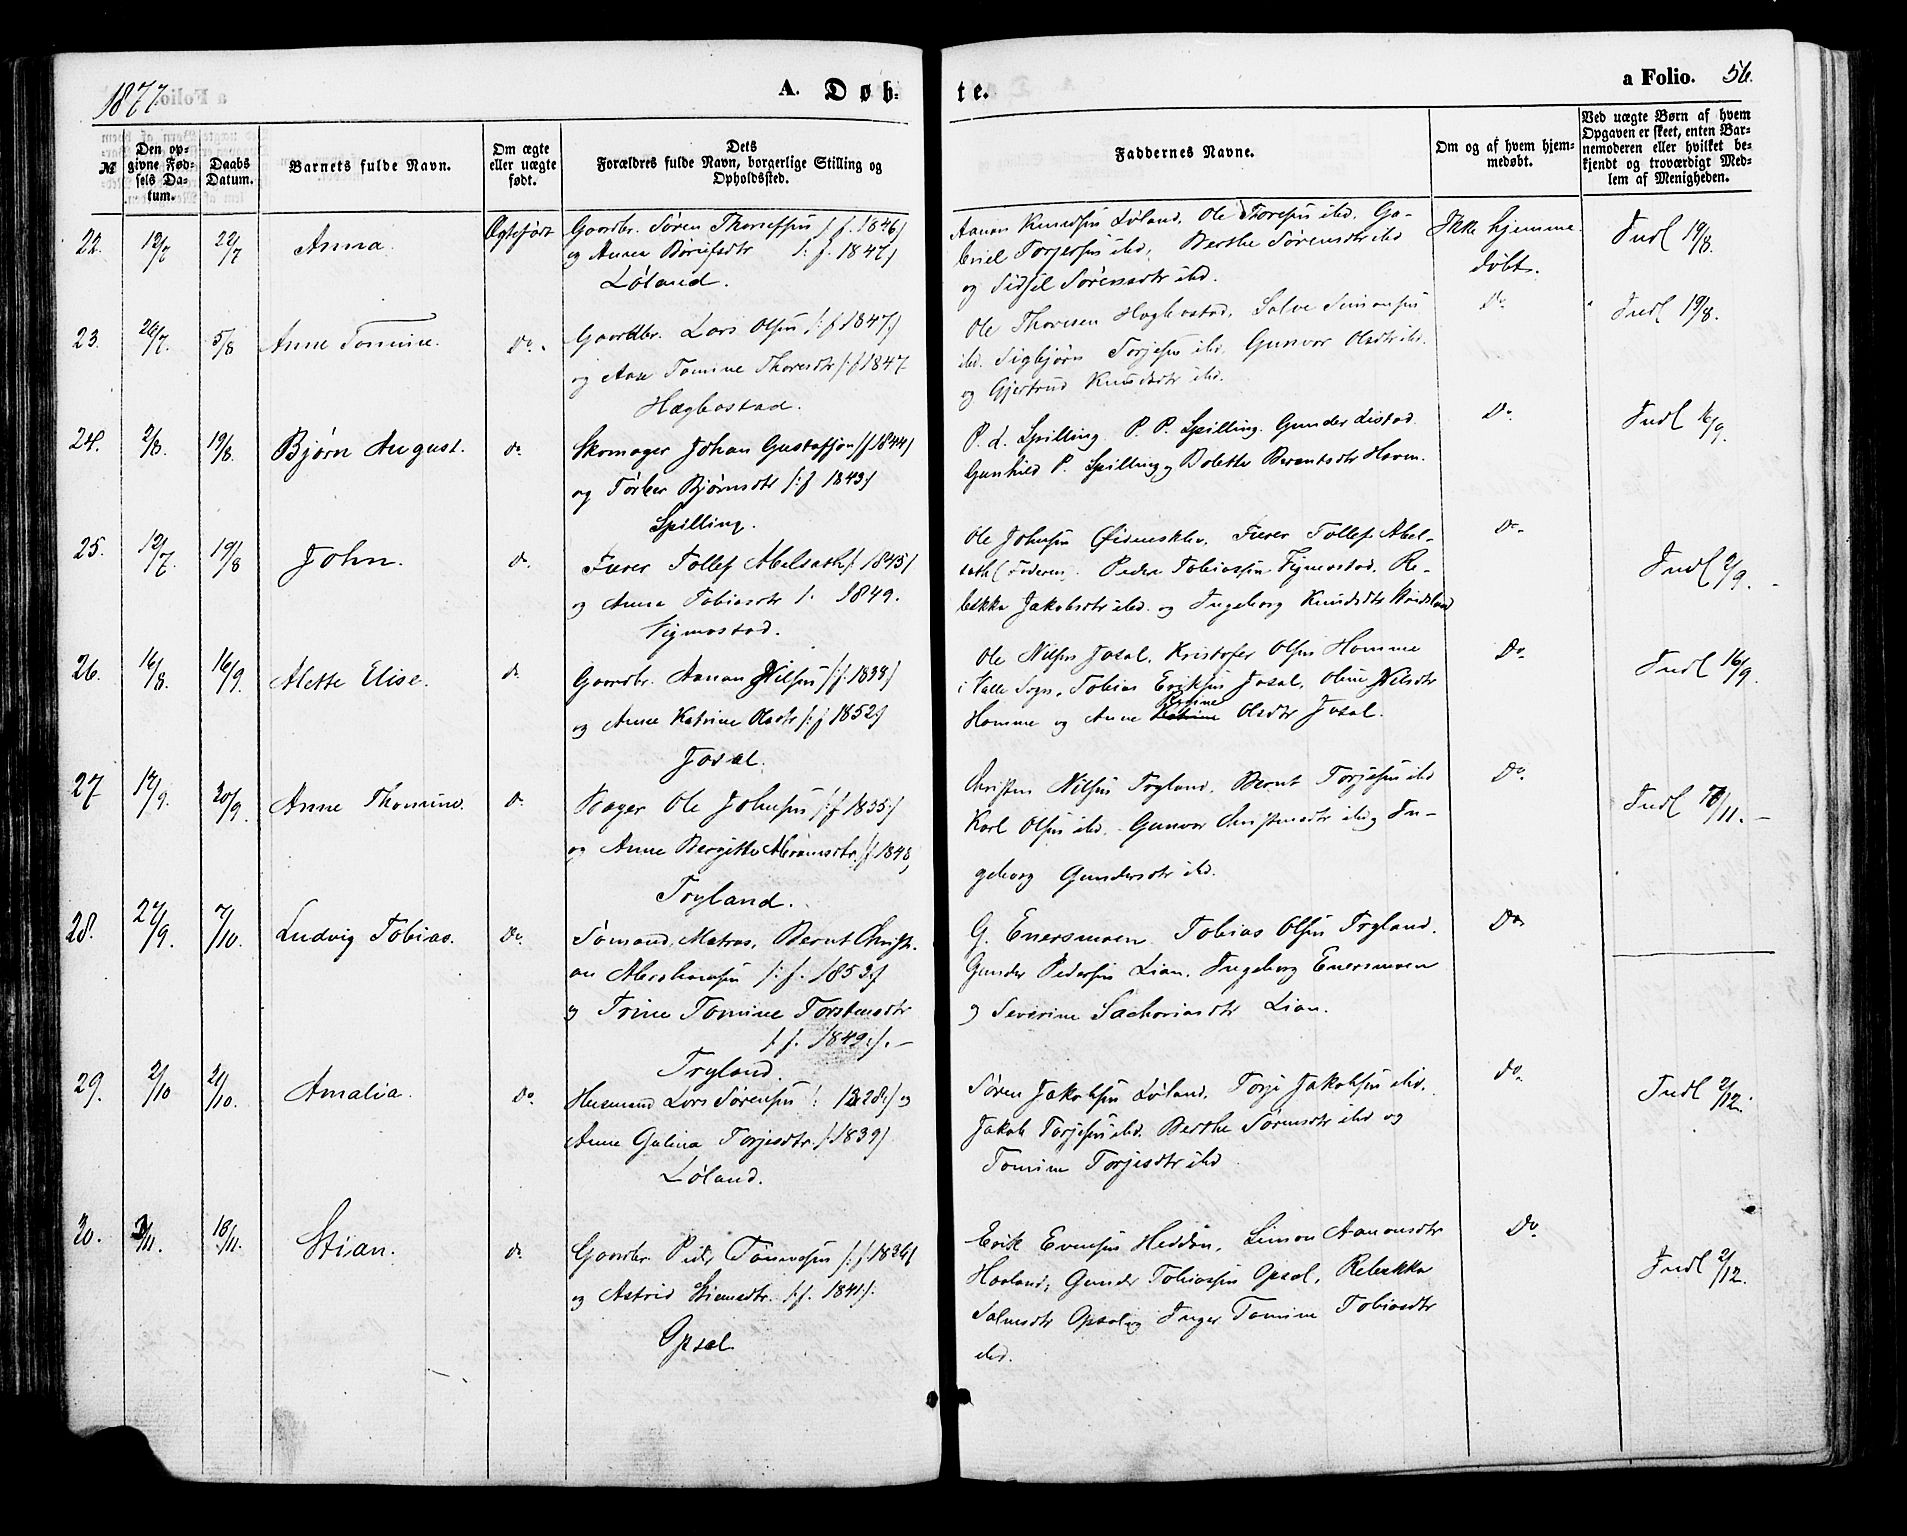 1877.
A. Døb-
te.
a Folio. 56.
№
Den op-
givne Fød-
sels Da-
tum.
Daabs
Datum.
Barnets fulde Navn.
Om ægte
eller uægte
født.
Dets
Forældres fulde Navn, borgerlige Stilling og
Opholdssted.
Faddernes Navne.
Om og af hvem hjem-
medøbt.
Ved uægte Børn af hvem
Opgaven er skeet, enten Bar-
nemoderen eller hvilket be-
kjendt og troværdigt Med-
lem af Menigheden.
22. 12/7 22/7 Anna. Ægtefødt
Gaardbr. Søren f. 1846)
og Anna f. 1847)
Løland.
Aanon Knudsen Løland. Ole Toresen ibd. Ga-
briel Torjesen ibd., Berthe Sørensdtr ibd
og Sidsel Sørensdtr ibd.
Ikke hjemme-
døbt.
Indl 19/8.
23. 26/7. 5/8 Anne Tomine. Do.
Gaardbr. Lars Olsen (: f 1847:)
og Ane Tomine Thoresdtr (: f 1847
Hægbostad.
Ole Thoresen Hægbostad, Salve Simonsen
ibd. Sigbjørn Torjesen ibd, Gunvor Olsdtr ibd.
og Gjertrud Knudsdtr ibd.
Do
Indl 19/8.
24. 2/8. 19/8. Bjørn August. do
Skomager Johan Gustafson (f 1844)
og Tørber Bjørnsdtr (: f 1843)
Spilling.
P. L. Spilling. P. P. Spilling. Gunder Listad.
Gunhild P. Spilling og Bolette Berentsdtr Haven.
Do
Indl 16/9.
25. 12/7. 19/8 John. do.
Tollef 1845)
og Anna Tobiasdtr (: 1849.
Vigmostad.
Ole Johnsen Øidnesklev, Tollef Abel-
Peder Tobiassen Vigmostad, Re-
bekka Jakobsdtr ibd. og Ingeborg Knudsdtr
Do.
Indl 2/9.
26. 16/8. 16/9. Alette Elise. do
Gaardbr. Aanon Nilsen (: f. 1838)
og Anne Katrine Olsdtr (: f 1852:)
Josal.
Ole Nilsen Josal, Kristofer Olsen Homme
i Valle Sogn, Tobias Eriksen Josal, Oline Nilsdtr
Homme og Anne Olsdtr Josal.
Do
Indl 16/9.
27 14/9. 30/9. Anne Thomine. do
Bager Ole Johnsen (: f 1835:)
og Anne Bergitte Abramsdtr (: f 1848,
Trygland.
Christen Nilsen Trygland. Bernt Torjesen ibd
Karl Olsen ibd. Gunvor Christensdtr ibd og In-
geborg Gundersdtr ibd.
Do.
Indl 18/11.
28. 27/9. 7/10. Ludvig Tobias. Do.
Sømand, Matros, Bernt Christi-
an Abrahamsen (: f. 1853:)
og Trine Tomine Torstensdtr
(: f. 1849:).
Trygland.
G. Enersmoen. Tobias Olsen Trygland.
Gunder Pedersen Lian. Ingeborg Enersmoen
og Severine Sachariasdtr Lian.
Do
29. 2/10 21/10. Amalia. Do.
Husmand Lars Sørensen (: 1828:) og
Anne Gulina Torjesdtr (: 1839)
Løland.
Søren Jakobsen Løland, Torje Jakobsen ibd.
Jakob Torjesen ibd. Berthe Sørensdtr ibd og
Tomine Torjesdtr ibd.
do.
Indl 2/12.
30. 3/11. 18/11. Stian. do
Gaardbr. Peder Tønnesen (: f 1836)
og Astrid Stiansdtr. (: f. 1841:).
Opsal.
Erik Evensen Heddan, Simon Aanonsdtr
Haaland, Gunder Tobiassen Opsal, Rebekka
Salvesdtr Opsal og Inger Tomine Tobiasdtr
ibd.
Do
Indl 2/12.